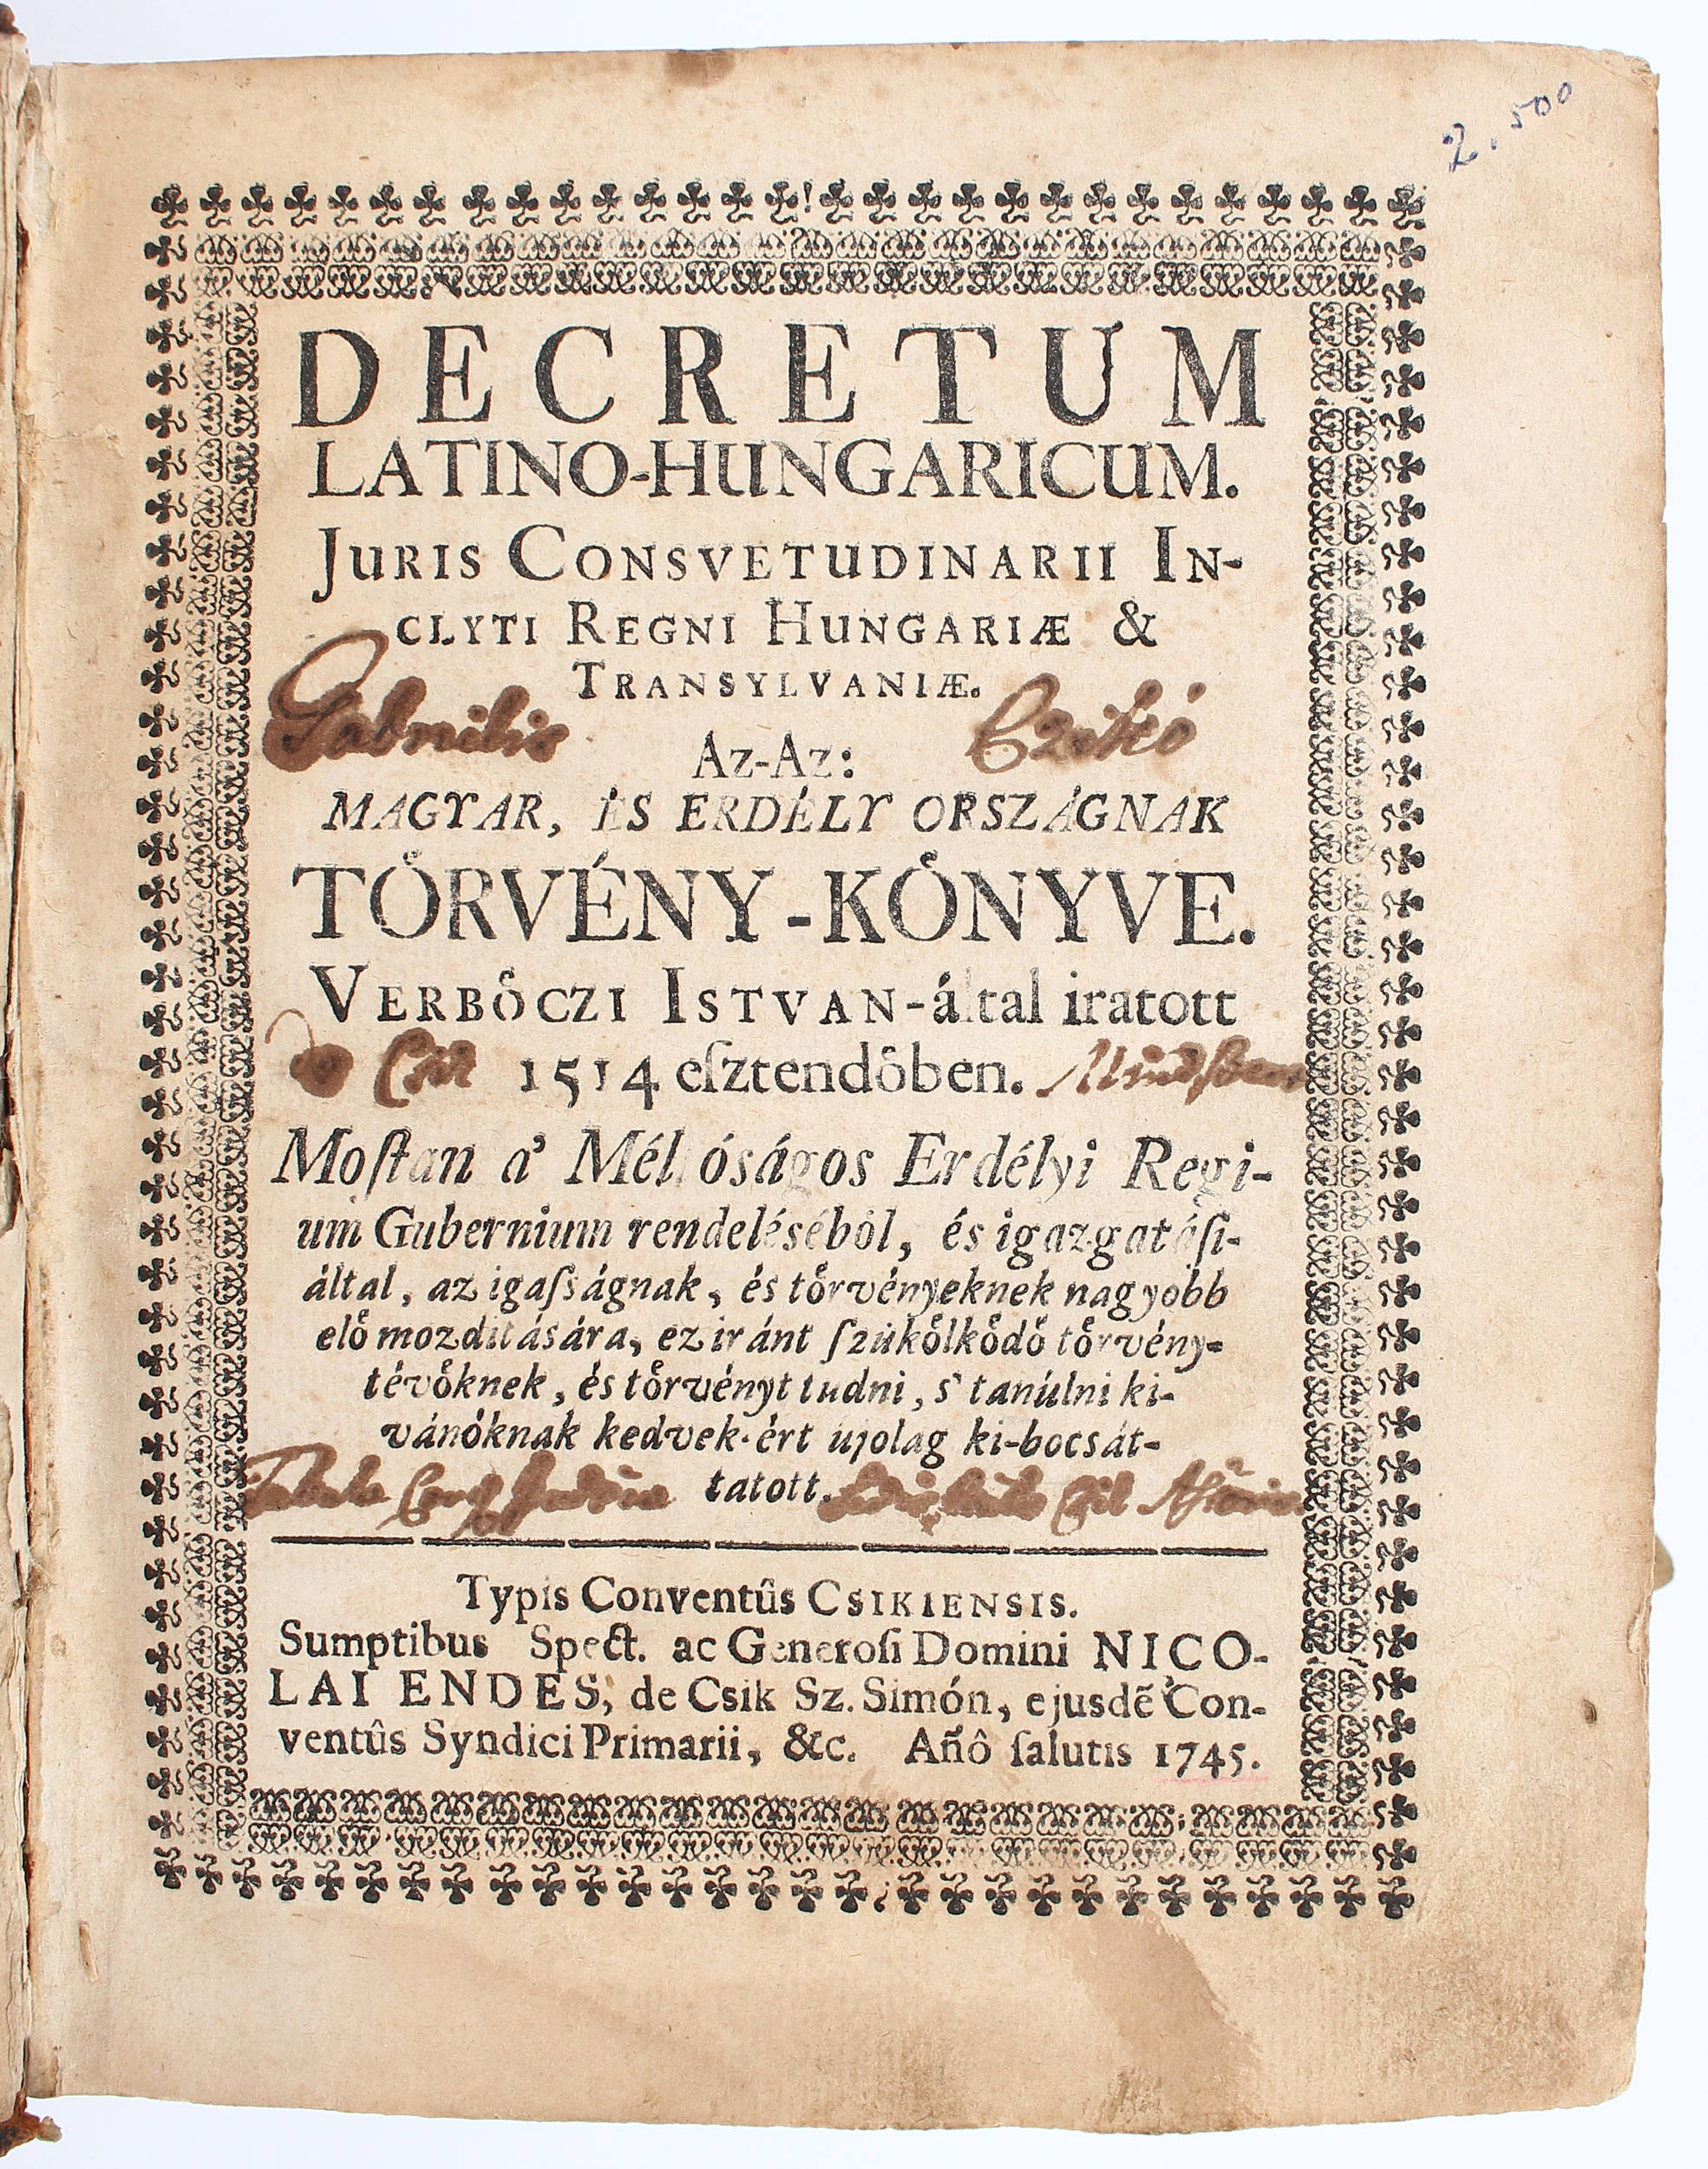 2.500
DECRETUM
LATINO-HUNGARICUM.
JURIS CONSVETUDINARII IN-
CLYTI REGNI HUNGARIÆ &
TRANSYLVANIÆ.
Gabrielis Czikó
Az-Az:
MAGYAR, ÉS ERDÉLY ORSZÁGNAK
TÖRVÉNY-KÖNYVE.
VERBÖCZI ISTVAN-által iratott
1514 eſztendöben.
Moſtan a' Méltóságos Erdélyi Regi-
um Gubernium rendeléséböl, és igazgatáſi-
által, az igaſságnak, és törvényeknek nagyobb
elö mozditására, ez iránt ſzükölködö törvény-
tévöknek, és törvényt tudni, s' tanúlni ki-
vánóknak kedvek-ért ujolag ki-bocsát-
tatott.
Typis Conventûs CSIKIENSIS.
Sumptibus Spect. ac Generoſi Domini NICO-
LAI ENDES, de Csik Sz. Simón, ejusdẽ Con-
ventûs Syndici Primarii, &c. Añô ſalutis 1745.